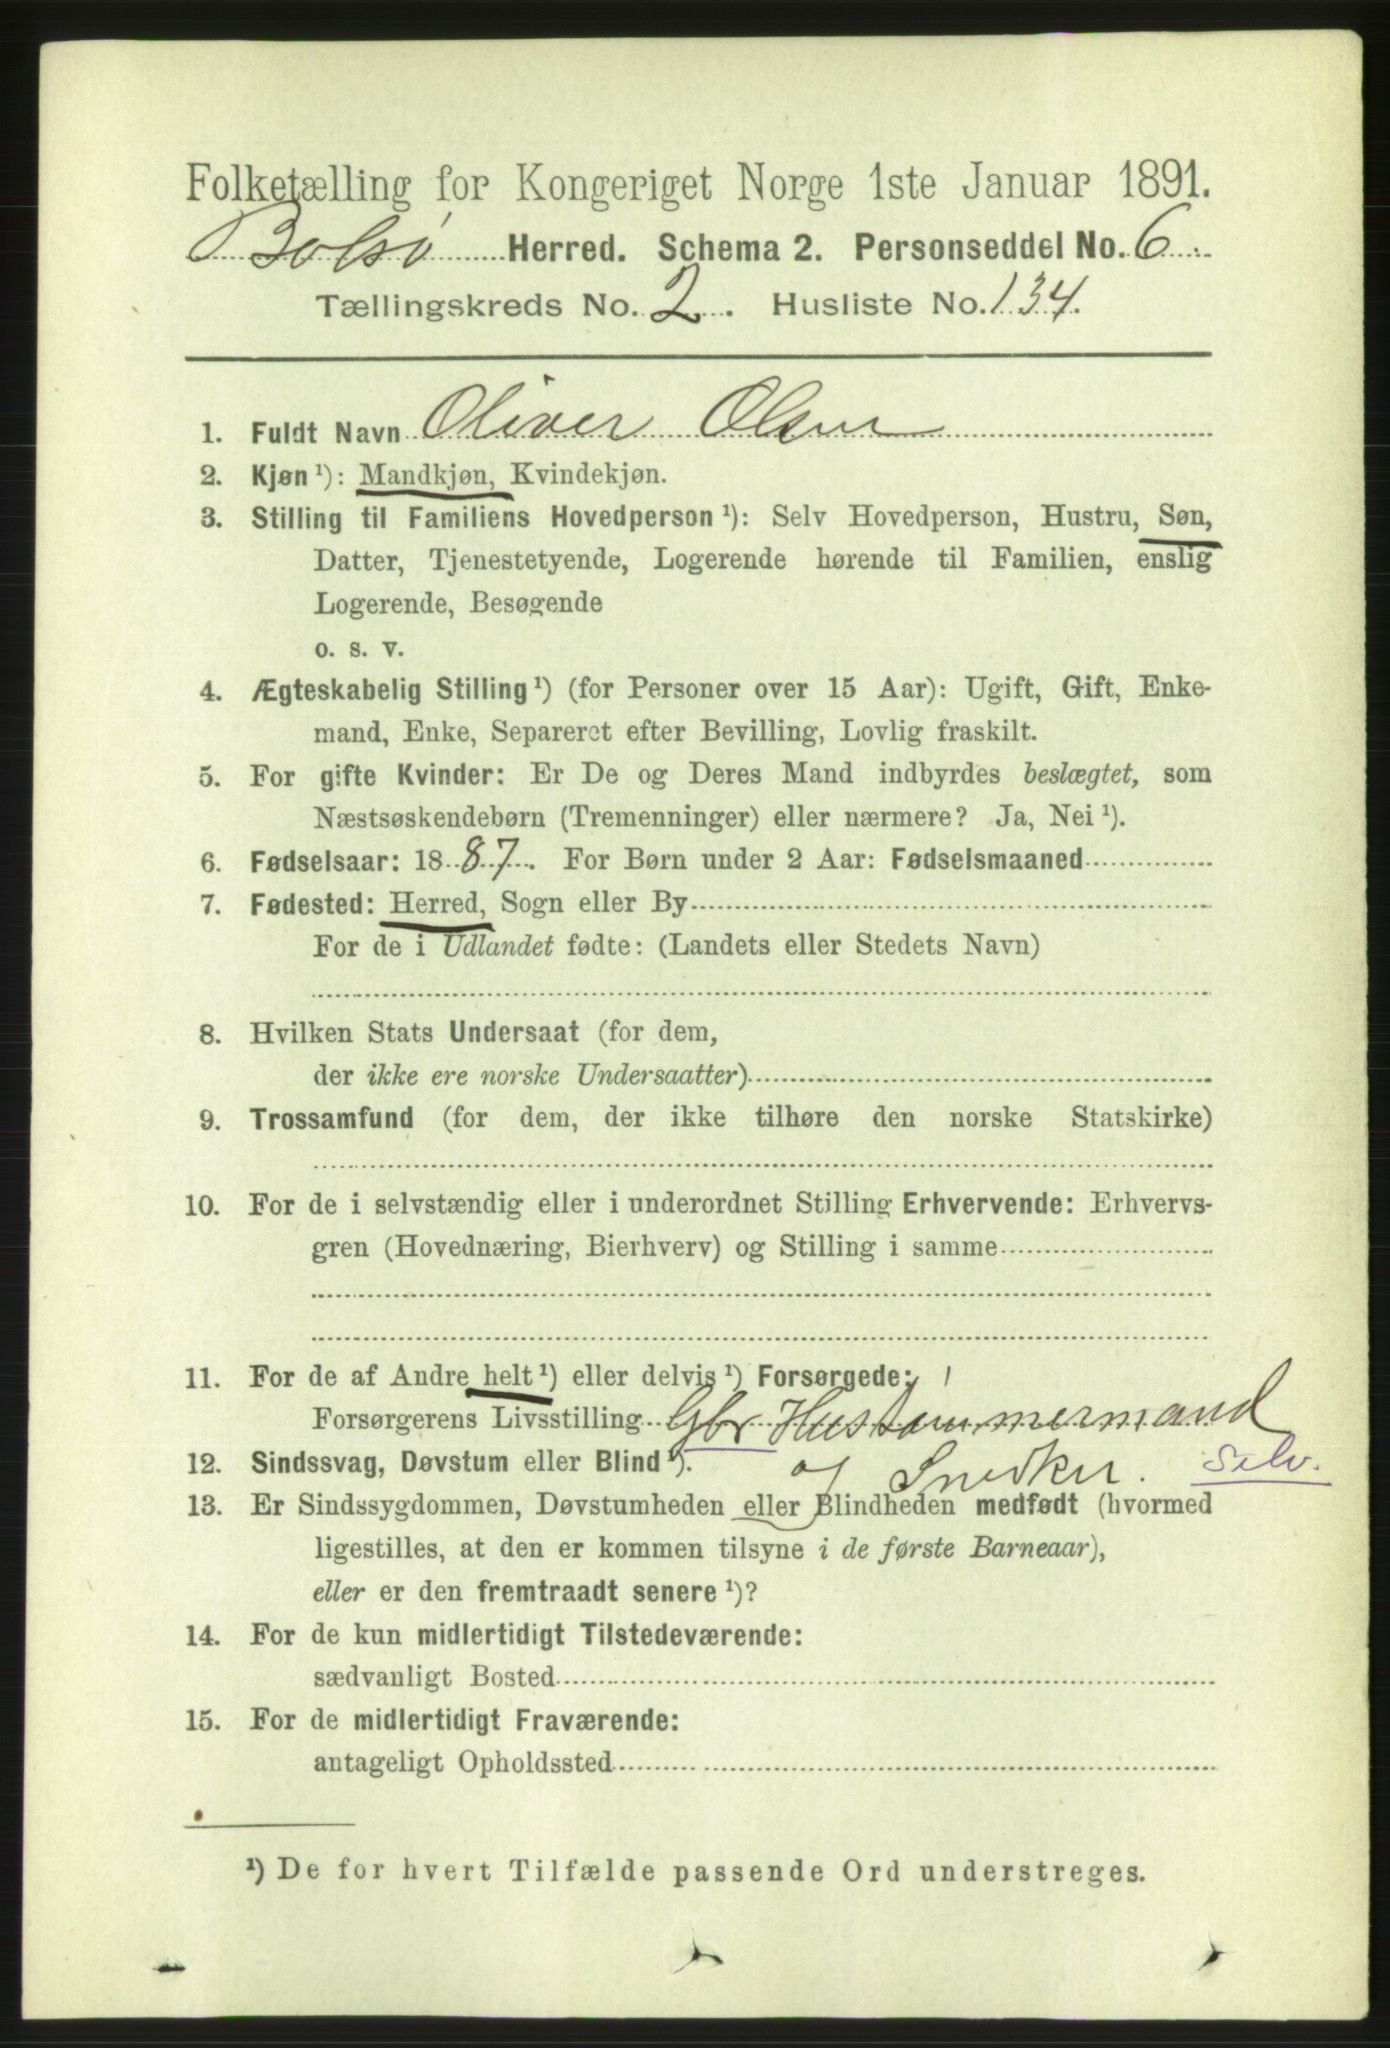 Folketælling for Kongeriget Norge 1ste Januar 1891.
Bolsø Herred. Schema 2. Personseddel No. 6.
Tællingskreds No. 2. Husliste No. 134.
1. Fuldt Navn Oliver Olsen
2. Kjøn ¹): Mandkjøn, Kvindekjøn.
3. Stilling til Familiens Hovedperson ¹): Selv Hovedperson, Hustru, Søn,
Datter, Tjenestetyende, Logerende hørende til Familien, enslig
Logerende, Besøgende
o. s. v.
4. Ægteskabelig Stilling ¹) (for Personer over 15 Aar): Ugift, Gift, Enke-
mand, Enke, Separeret efter Bevilling, Lovlig fraskilt.
5. For gifte Kvinder: Er De og Deres Mand indbyrdes beslægtet, som
Næstsøskendebørn (Tremenninger) eller nærmere? Ja, Nei ¹).
6. Fødselsaar: 1887. For Børn under 2 Aar: Fødselsmaaned
7. Fødested: Herred, Sogn eller By
For de i Udlandet fødte: (Landets eller Stedets Navn)
8. Hvilken Stats Undersaat (for dem,
der ikke ere norske Undersaatter)
9. Trossamfund (for dem, der ikke tilhøre den norske Statskirke)
10. For de i selvstændig eller i underordnet Stilling Erhvervende: Erhvervs-
gren (Hovednæring, Bierhverv) og Stilling i samme
11. For de af Andre helt ¹) eller delvis ¹) Forsørgede:
Forsørgerens Livsstilling Gbr Hustømmermand
12. Sindssvag, Døvstum eller Blind ¹). og Snedker. Selv.
13. Er Sindssygdommen, Døvstumheden eller Blindheden medfødt (hvormed
ligestilles, at den er kommen tilsyne i de første Barneaar),
eller er den fremtraadt senere ¹)?
14. For de kun midlertidigt Tilstedeværende:
sædvanligt Bosted
15. For de midlertidigt Fraværende:
antageligt Opholdssted
¹) De for hvert Tilfælde passende Ord understreges.